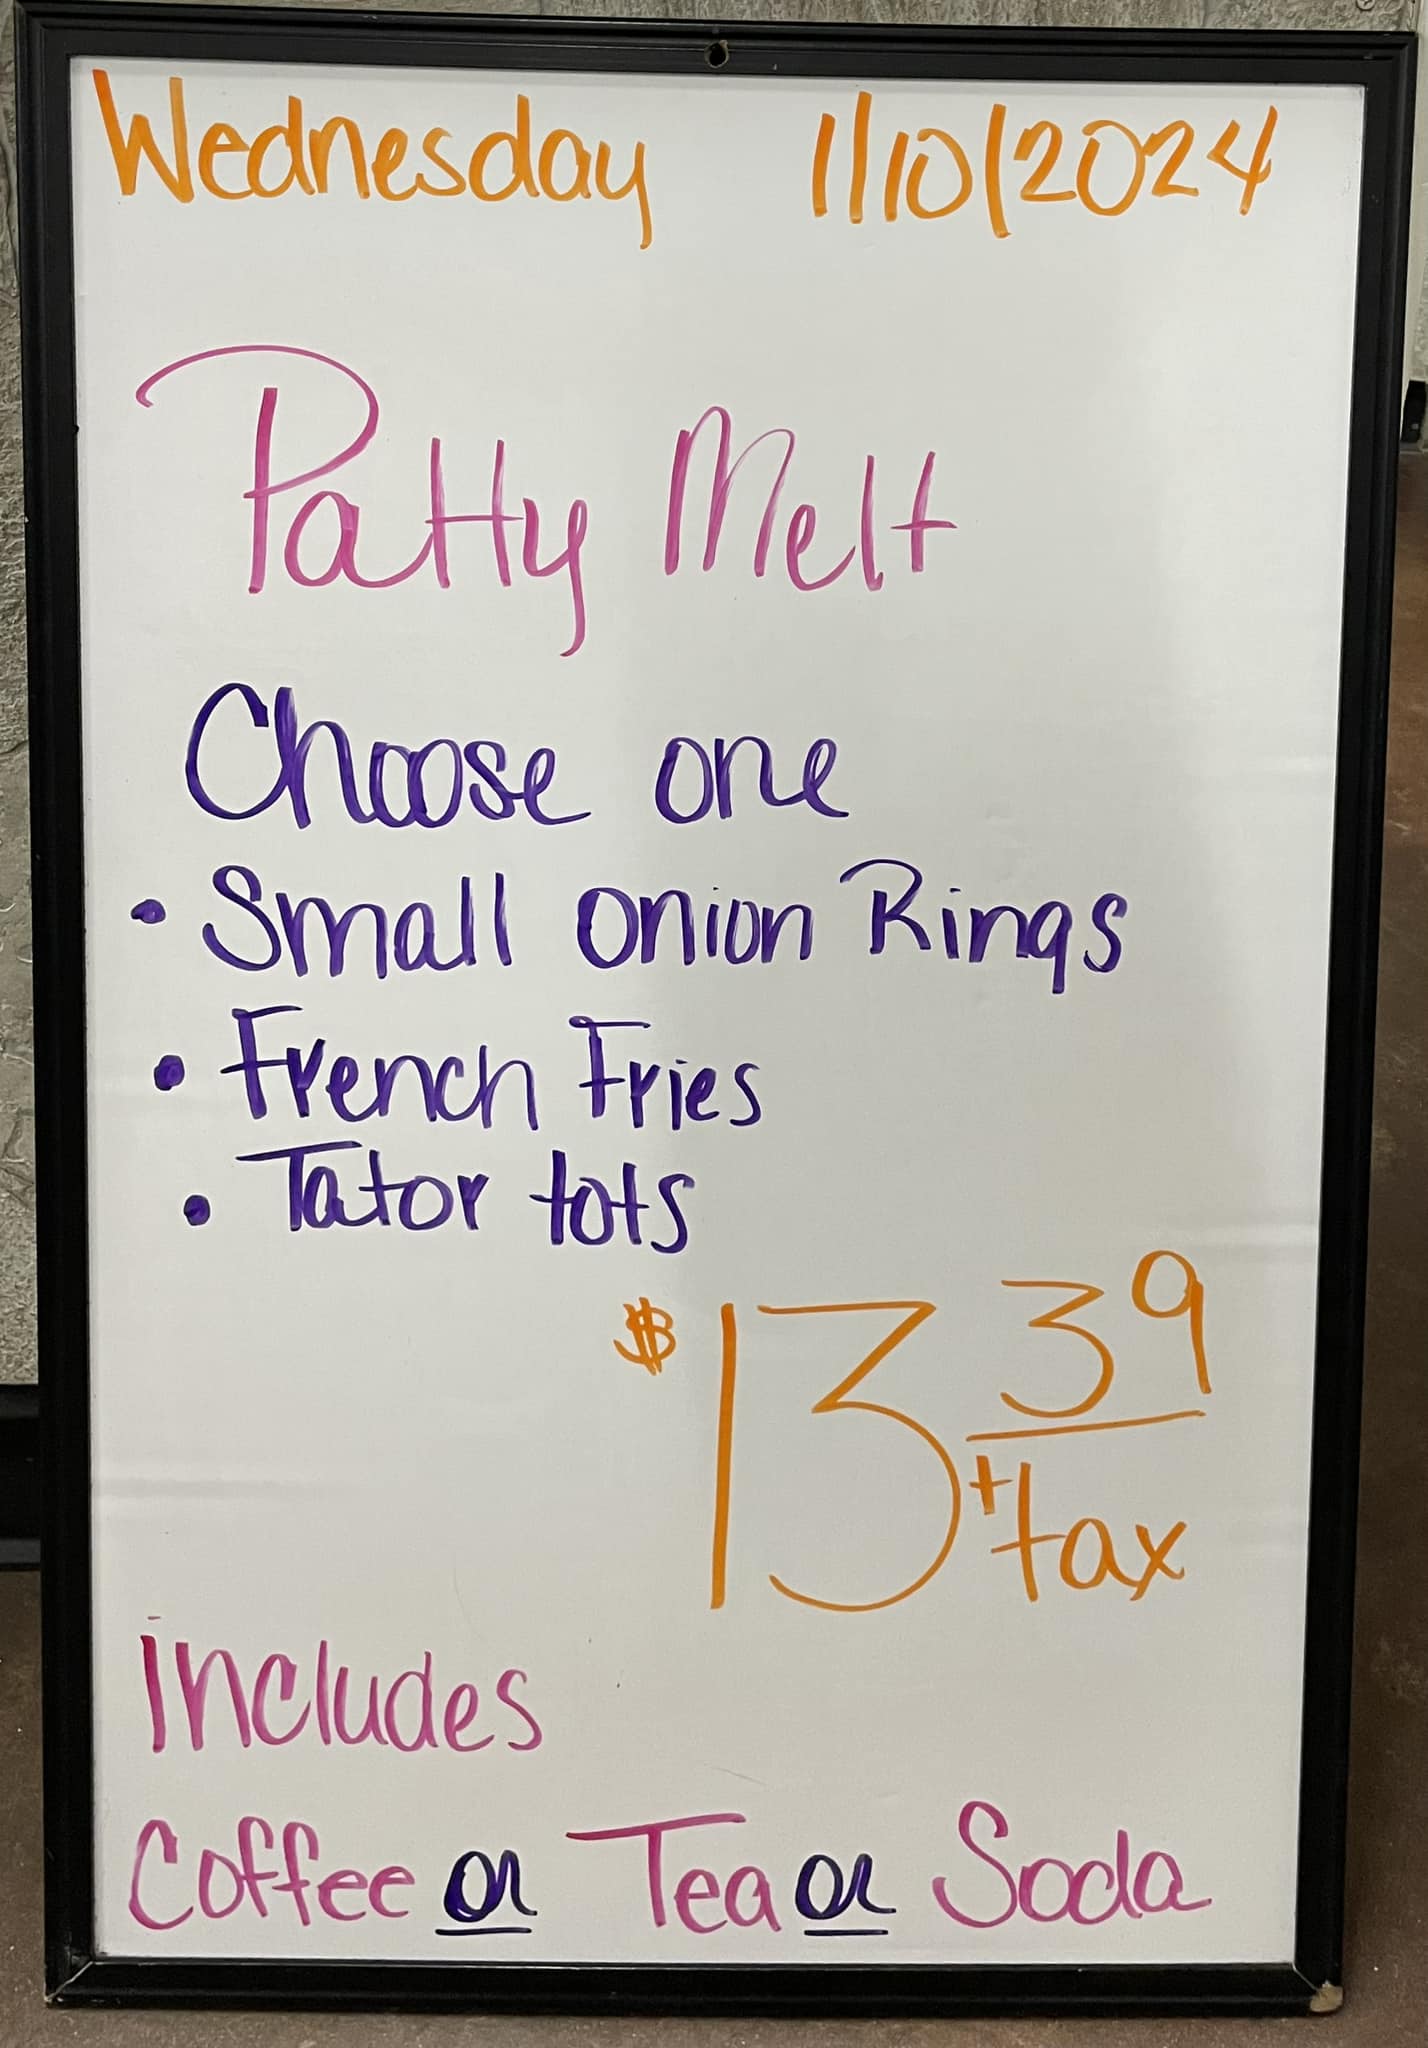 Wednesday 1/10/2024
Patty Melt
Choose one
• Small onion Rings
• French Fries
• Tator tots
$13 39
+tax
includes
Coffee or Tea or Soda